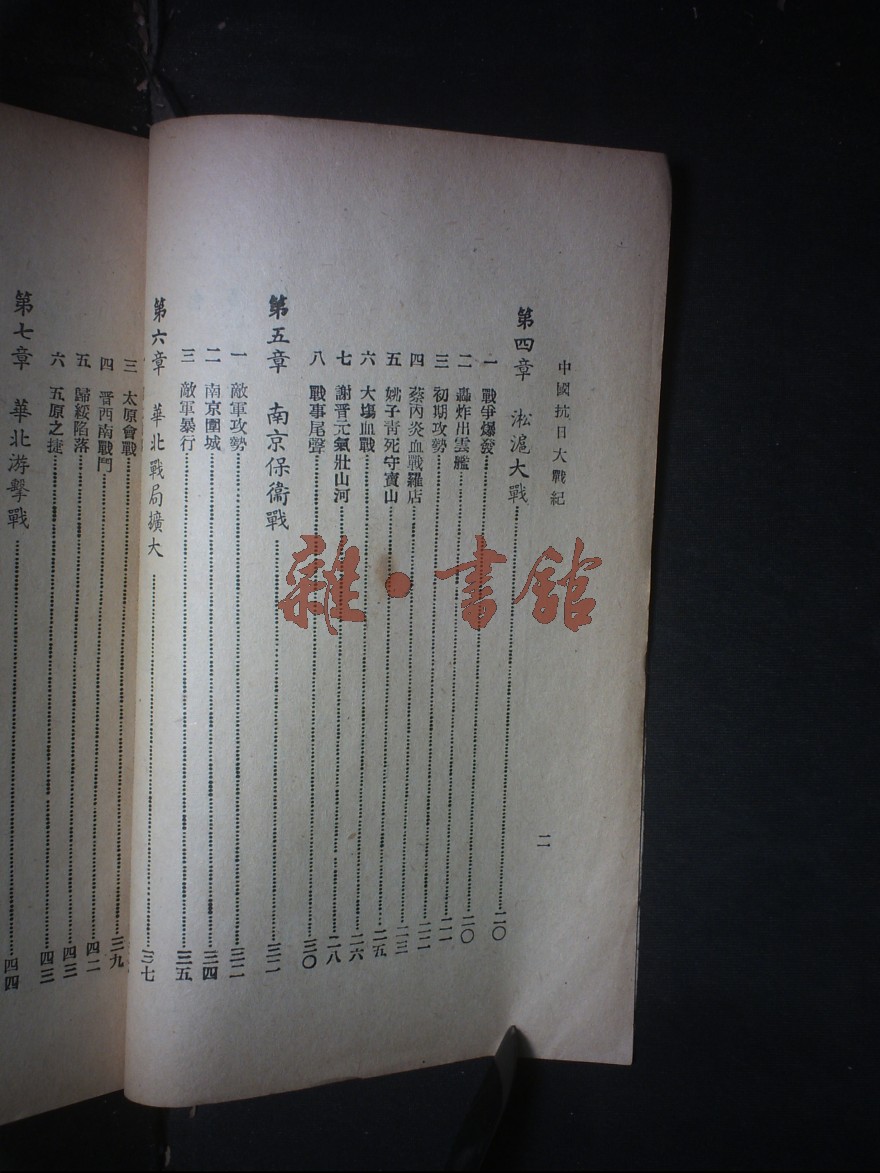 中國抗日大戰紀
二
第四章 淞滬大戰……二〇
一 戰爭爆發……二〇
二 轟炸出雲艦……二一
三 初期攻勢……二二
四 蔡丙炎血戰羅店……二三
五 姚子青死守寶山……二五
六 大塲血戰……二六
七 謝晋元氣壯山河……二八
八 戰事尾聲……三〇
第五章 南京保衞戰……三二
一 敵軍攻勢……三二
二 南京圍城……三四
三 敵軍暴行……三五
第六章 華北戰局擴大……三七
三 太原會戰……三九
四 晋西南戰鬥……四二
五 歸綏陷落……四三
六 五原之捷……四三
第七章 華北游擊戰……四四
雜·書舘